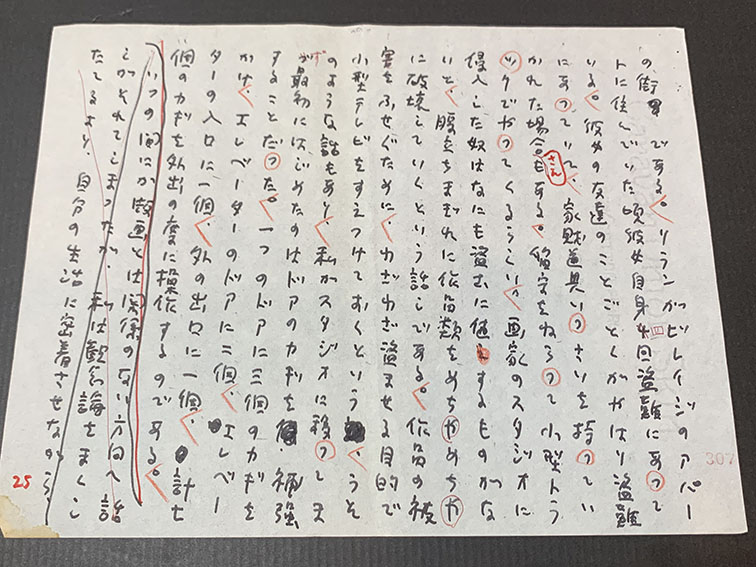 の街中である。リランがビレイジのアパー
トに住んでいた頃彼女自身4回盗難にあって
いる。彼女の友達のことごとくがやはり盗難
にあっていて、家財道具いっさいを持ってい
かれた場合さえもある。留守をねらって小型トラ
ックでやってくるらしい。画家のスタジオに
侵入した奴はなにも盗むに値するものがな
いと、腹立ちまぎれに作品類をめちゃめちゃ
に破壊していくという話しである。作品の被
害をふせぐために、わざわざ盗ませる目的で
小型テレビをすえつけておくという、うそ
のような話もあり、私がスタジオに移ってま
ず最初にはじめたのはドアのカギを補強
することだった。一つのドアに三個のカギを
かけ、エレベーターのドアに二個、エレベー
ターの入口に一個、外の出口に一個、計七
個のカギを外出の度に操作するのである。
いつの間にか版画とは関係のない方向へ話
しがそれてしまったが、私は観念論をまくし
たてるより、自分の生活に密着させながら
25
307